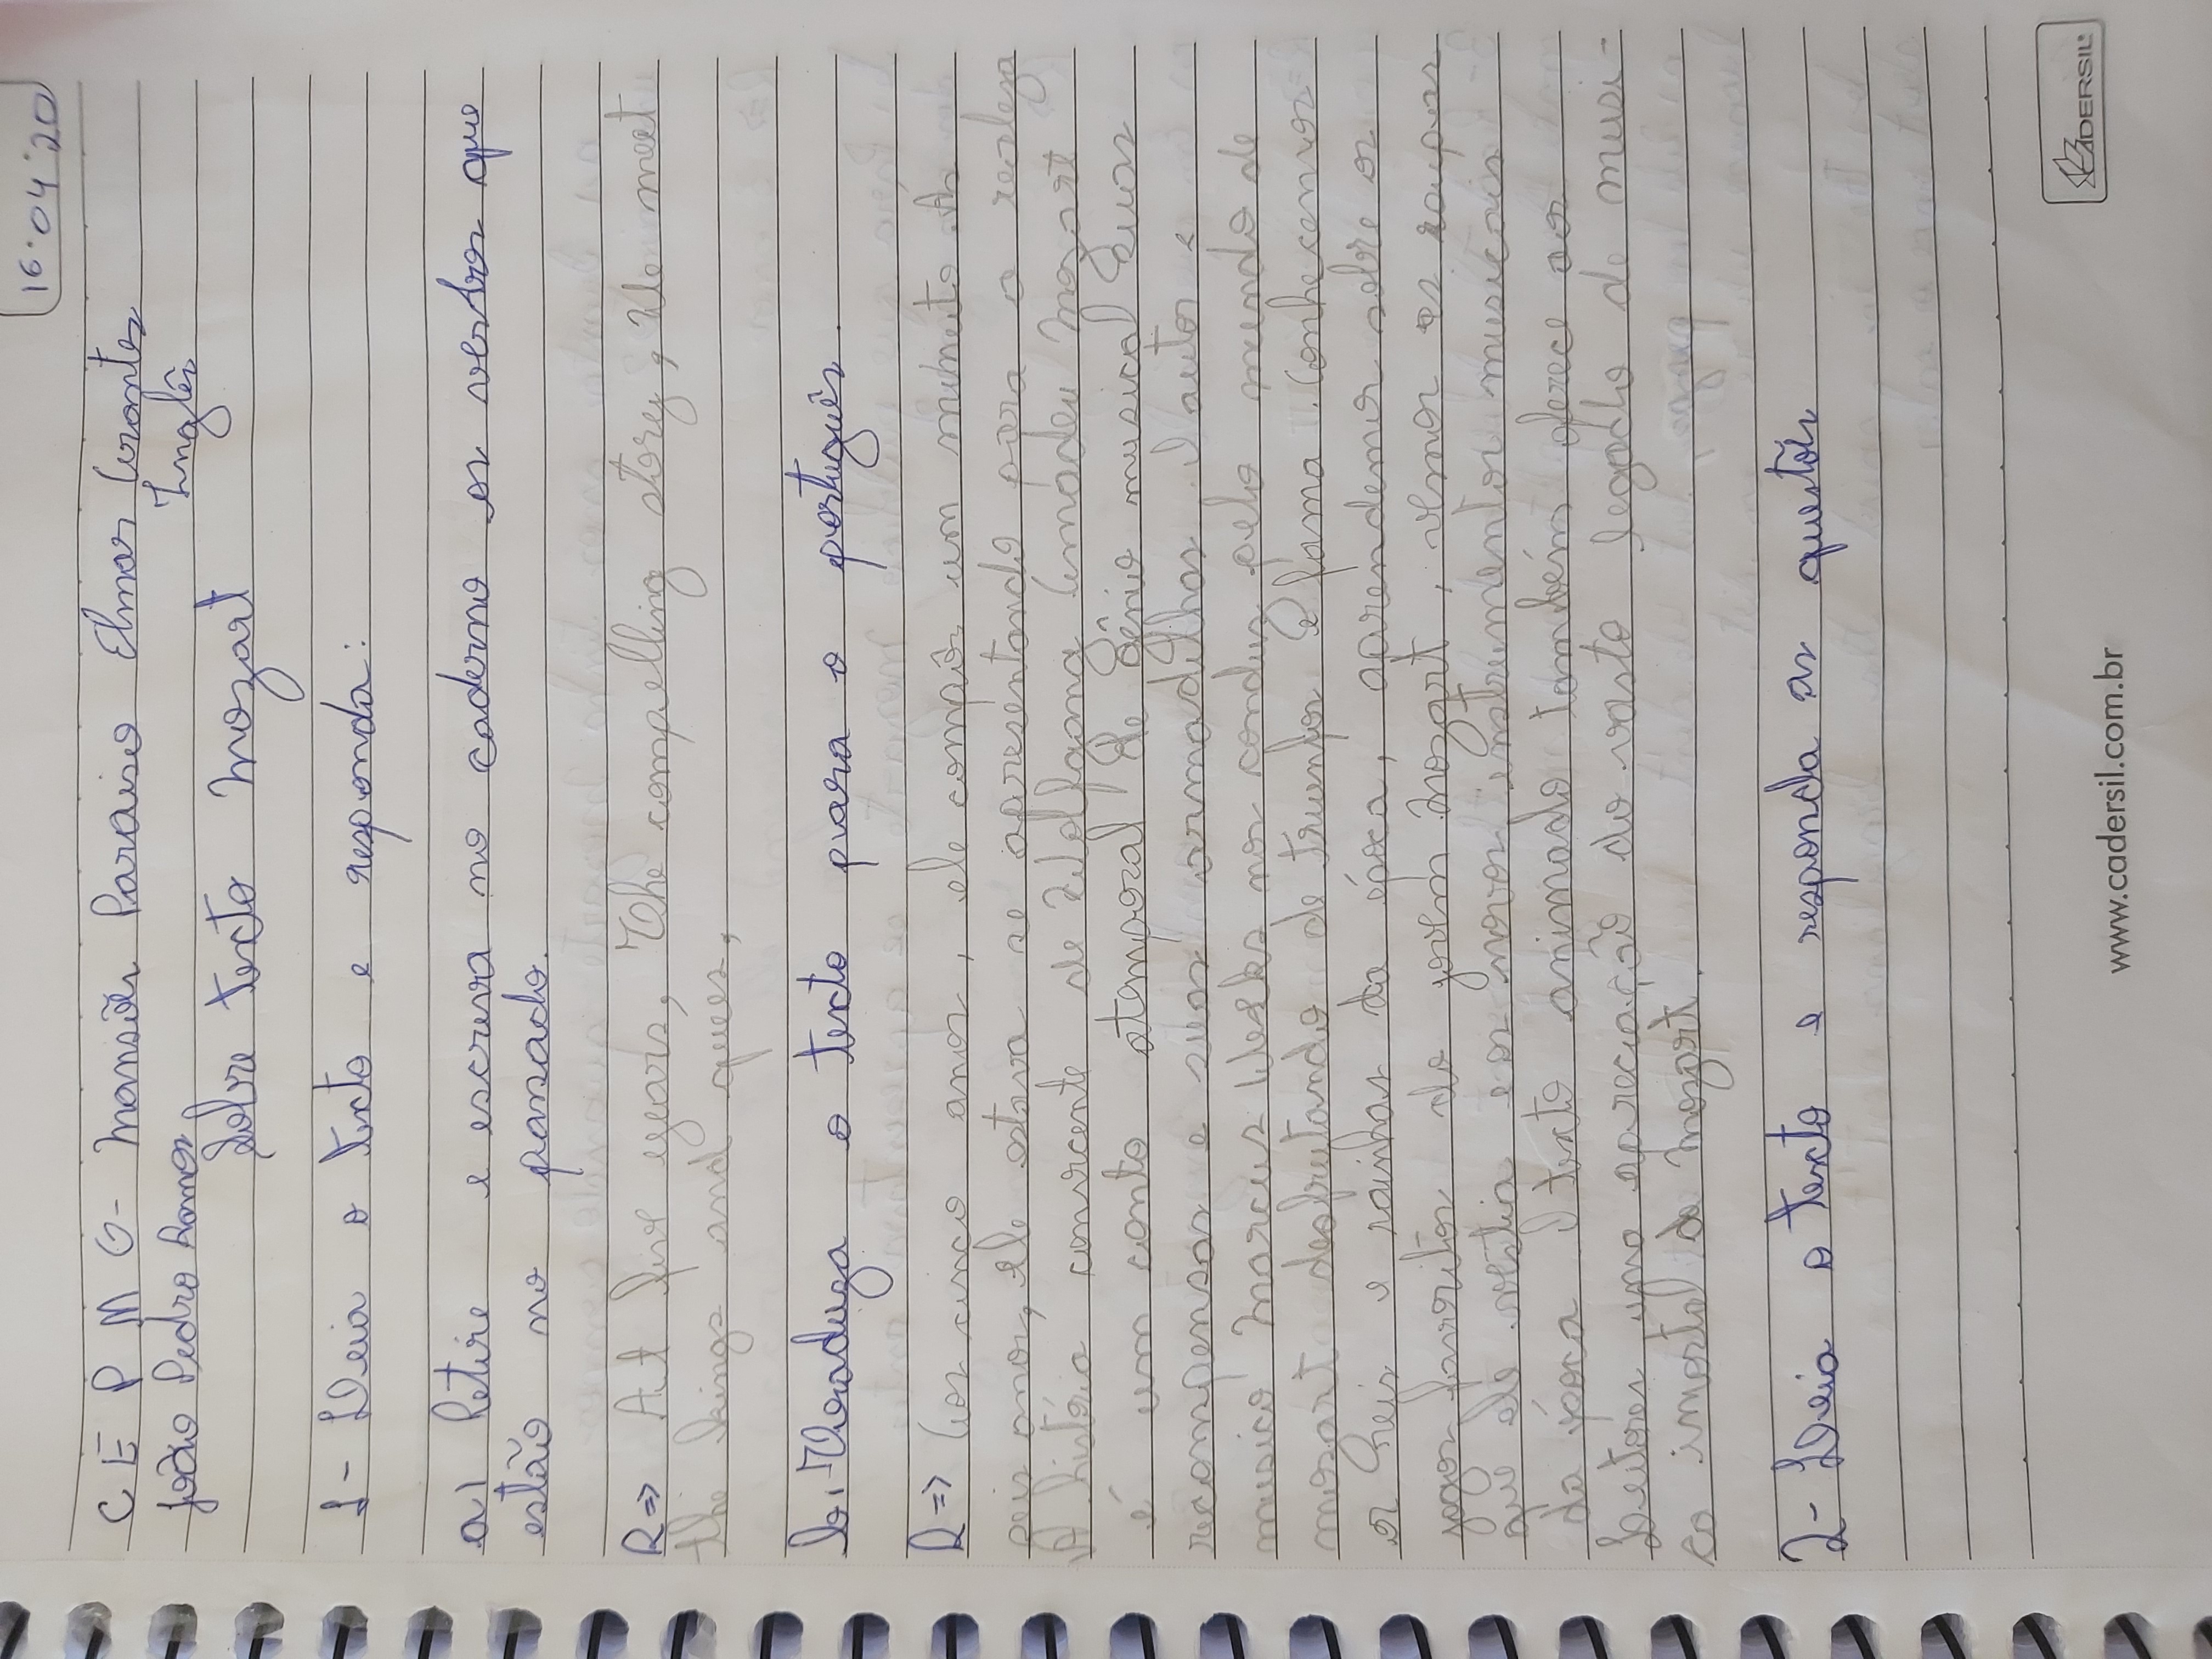 16.04.20
C E P M G - Mansões Paraiso Elmar Arantes
João Pedro Ramos Inglês
Sobre texto Mozart
1- Leia o texto e responda:
a) Retire e escreva no caderno os verbos que
estão no passado.
R=> At five years, The compelling story, We meet
the kings and quees,
b) Traduza o texto para o português.
R=> Aos cinco anos, ele compôs um minueto As
seis anos, ele estava se apresentando para a realeza
A história convicente de Wolfgang Amadeu Mozart
é um conto atemporal de gênio musical suas
recompensas e suas armadilhas. O autor e
musico Marcus Weeks nos conduz pelo mundo de
mozart desfrutando de triunfos e fama. Conhecemos
os reis e rainhas da época, aprendemos sobre os
jogos favoritos do jovem Mozart, vemos as roupas
que ele vestia e os novos instrumentos musicais
da época O texto animado também oferece aos
Leitores uma apreciação do vasto legado de musi-
ca imortal de Mozart.
2- Leia o texto e responda as questões
CADERSIL
www.cadersil.com.br